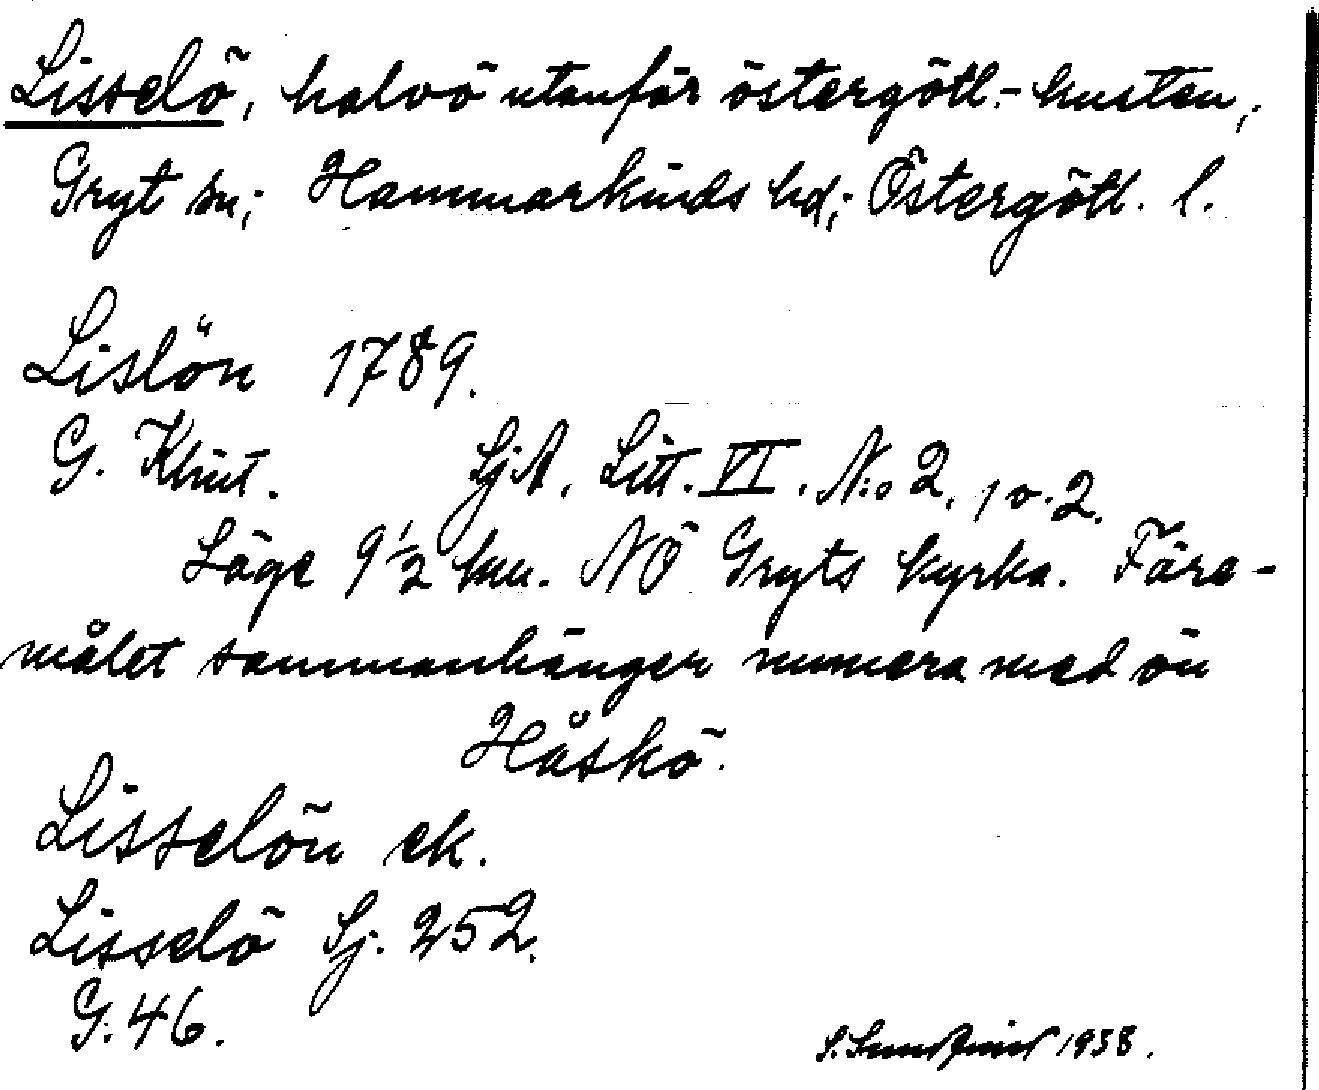 Lisselö, halvö utanför östergötl.-kusten,
Gryt sn; Hammarkinds hd; Östergötl. l.
Lislön 1789.
G. Klint. SjA. Litt. VI. N:o 2, 1 o. 2.
Läge 9 1/2 km. NÖ Gryts kyrka. Före-
målet sammanhänger numera med ön
Håskö.
Lisselön ek.
Lisselö Sj. 252.
G. 46.
1938.